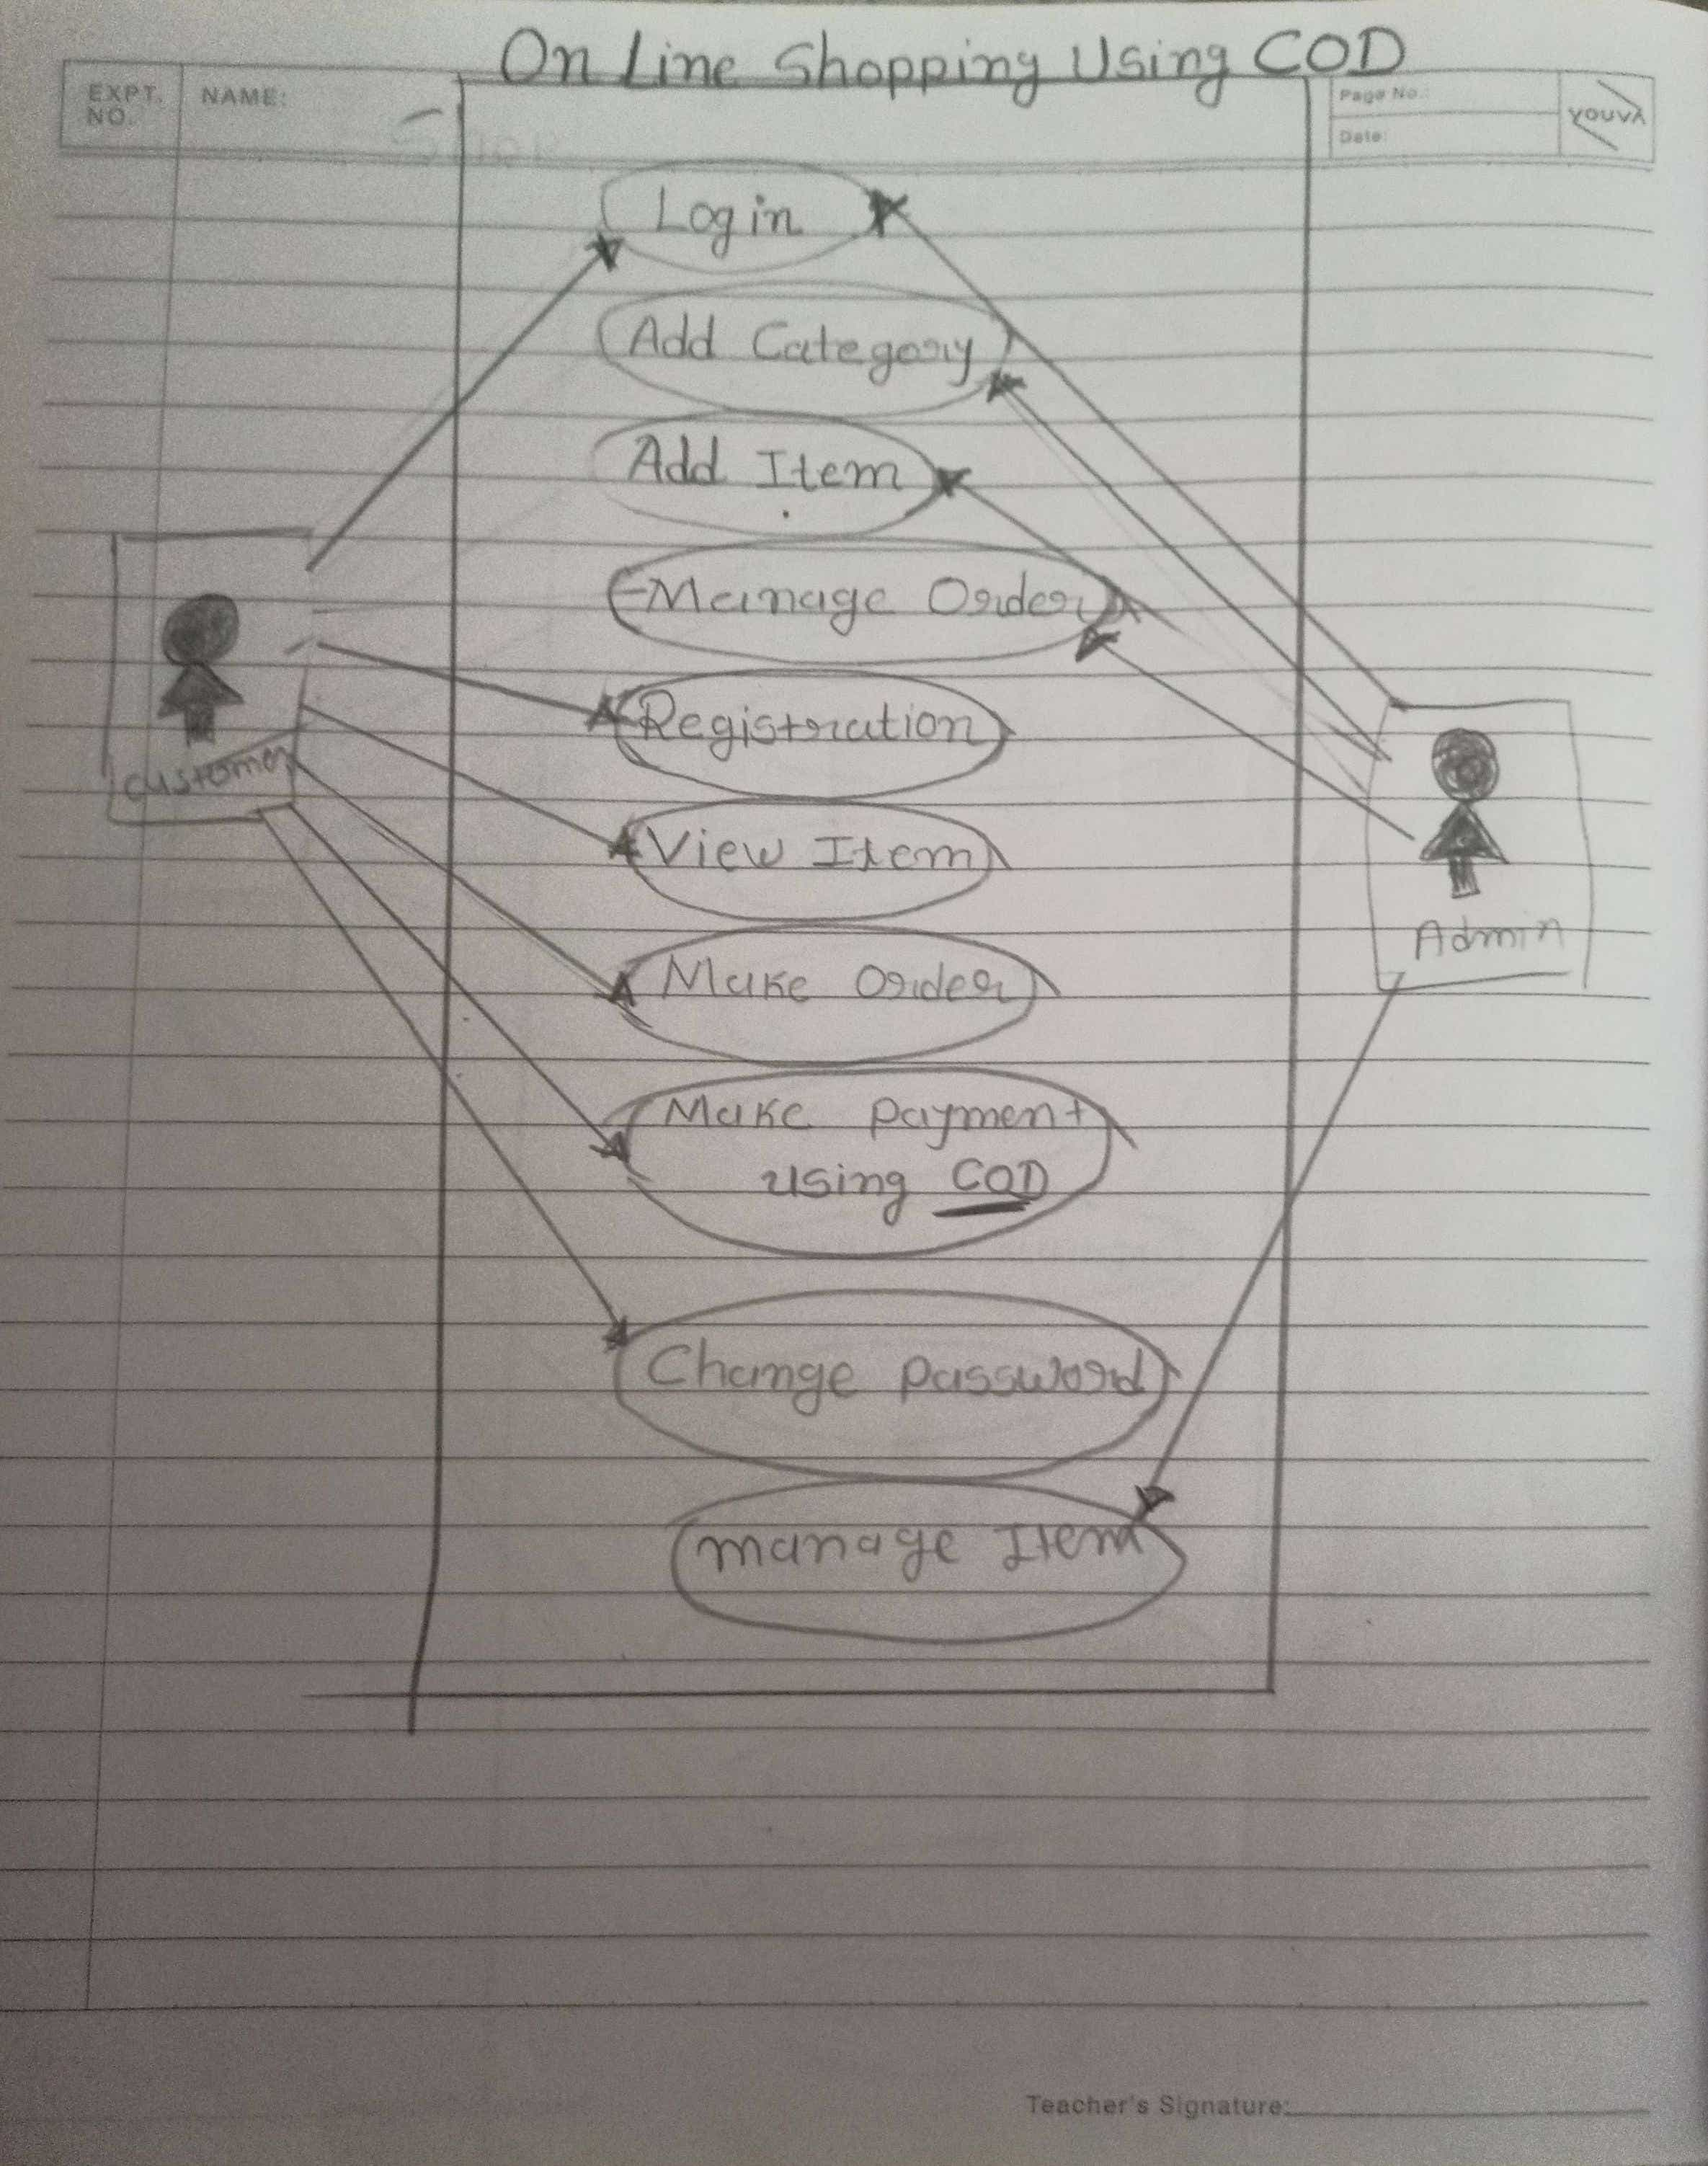 On Line Shopping Using COD
EXPT. NO.
NAME:
Page No.:
Date:
YOUVA
Login
Add Category
Add Item
Manage Order
Registration
View Item
Customer
Make Order
Admin
Make payment
using COD
Change password
manage Item
Teacher's Signature: